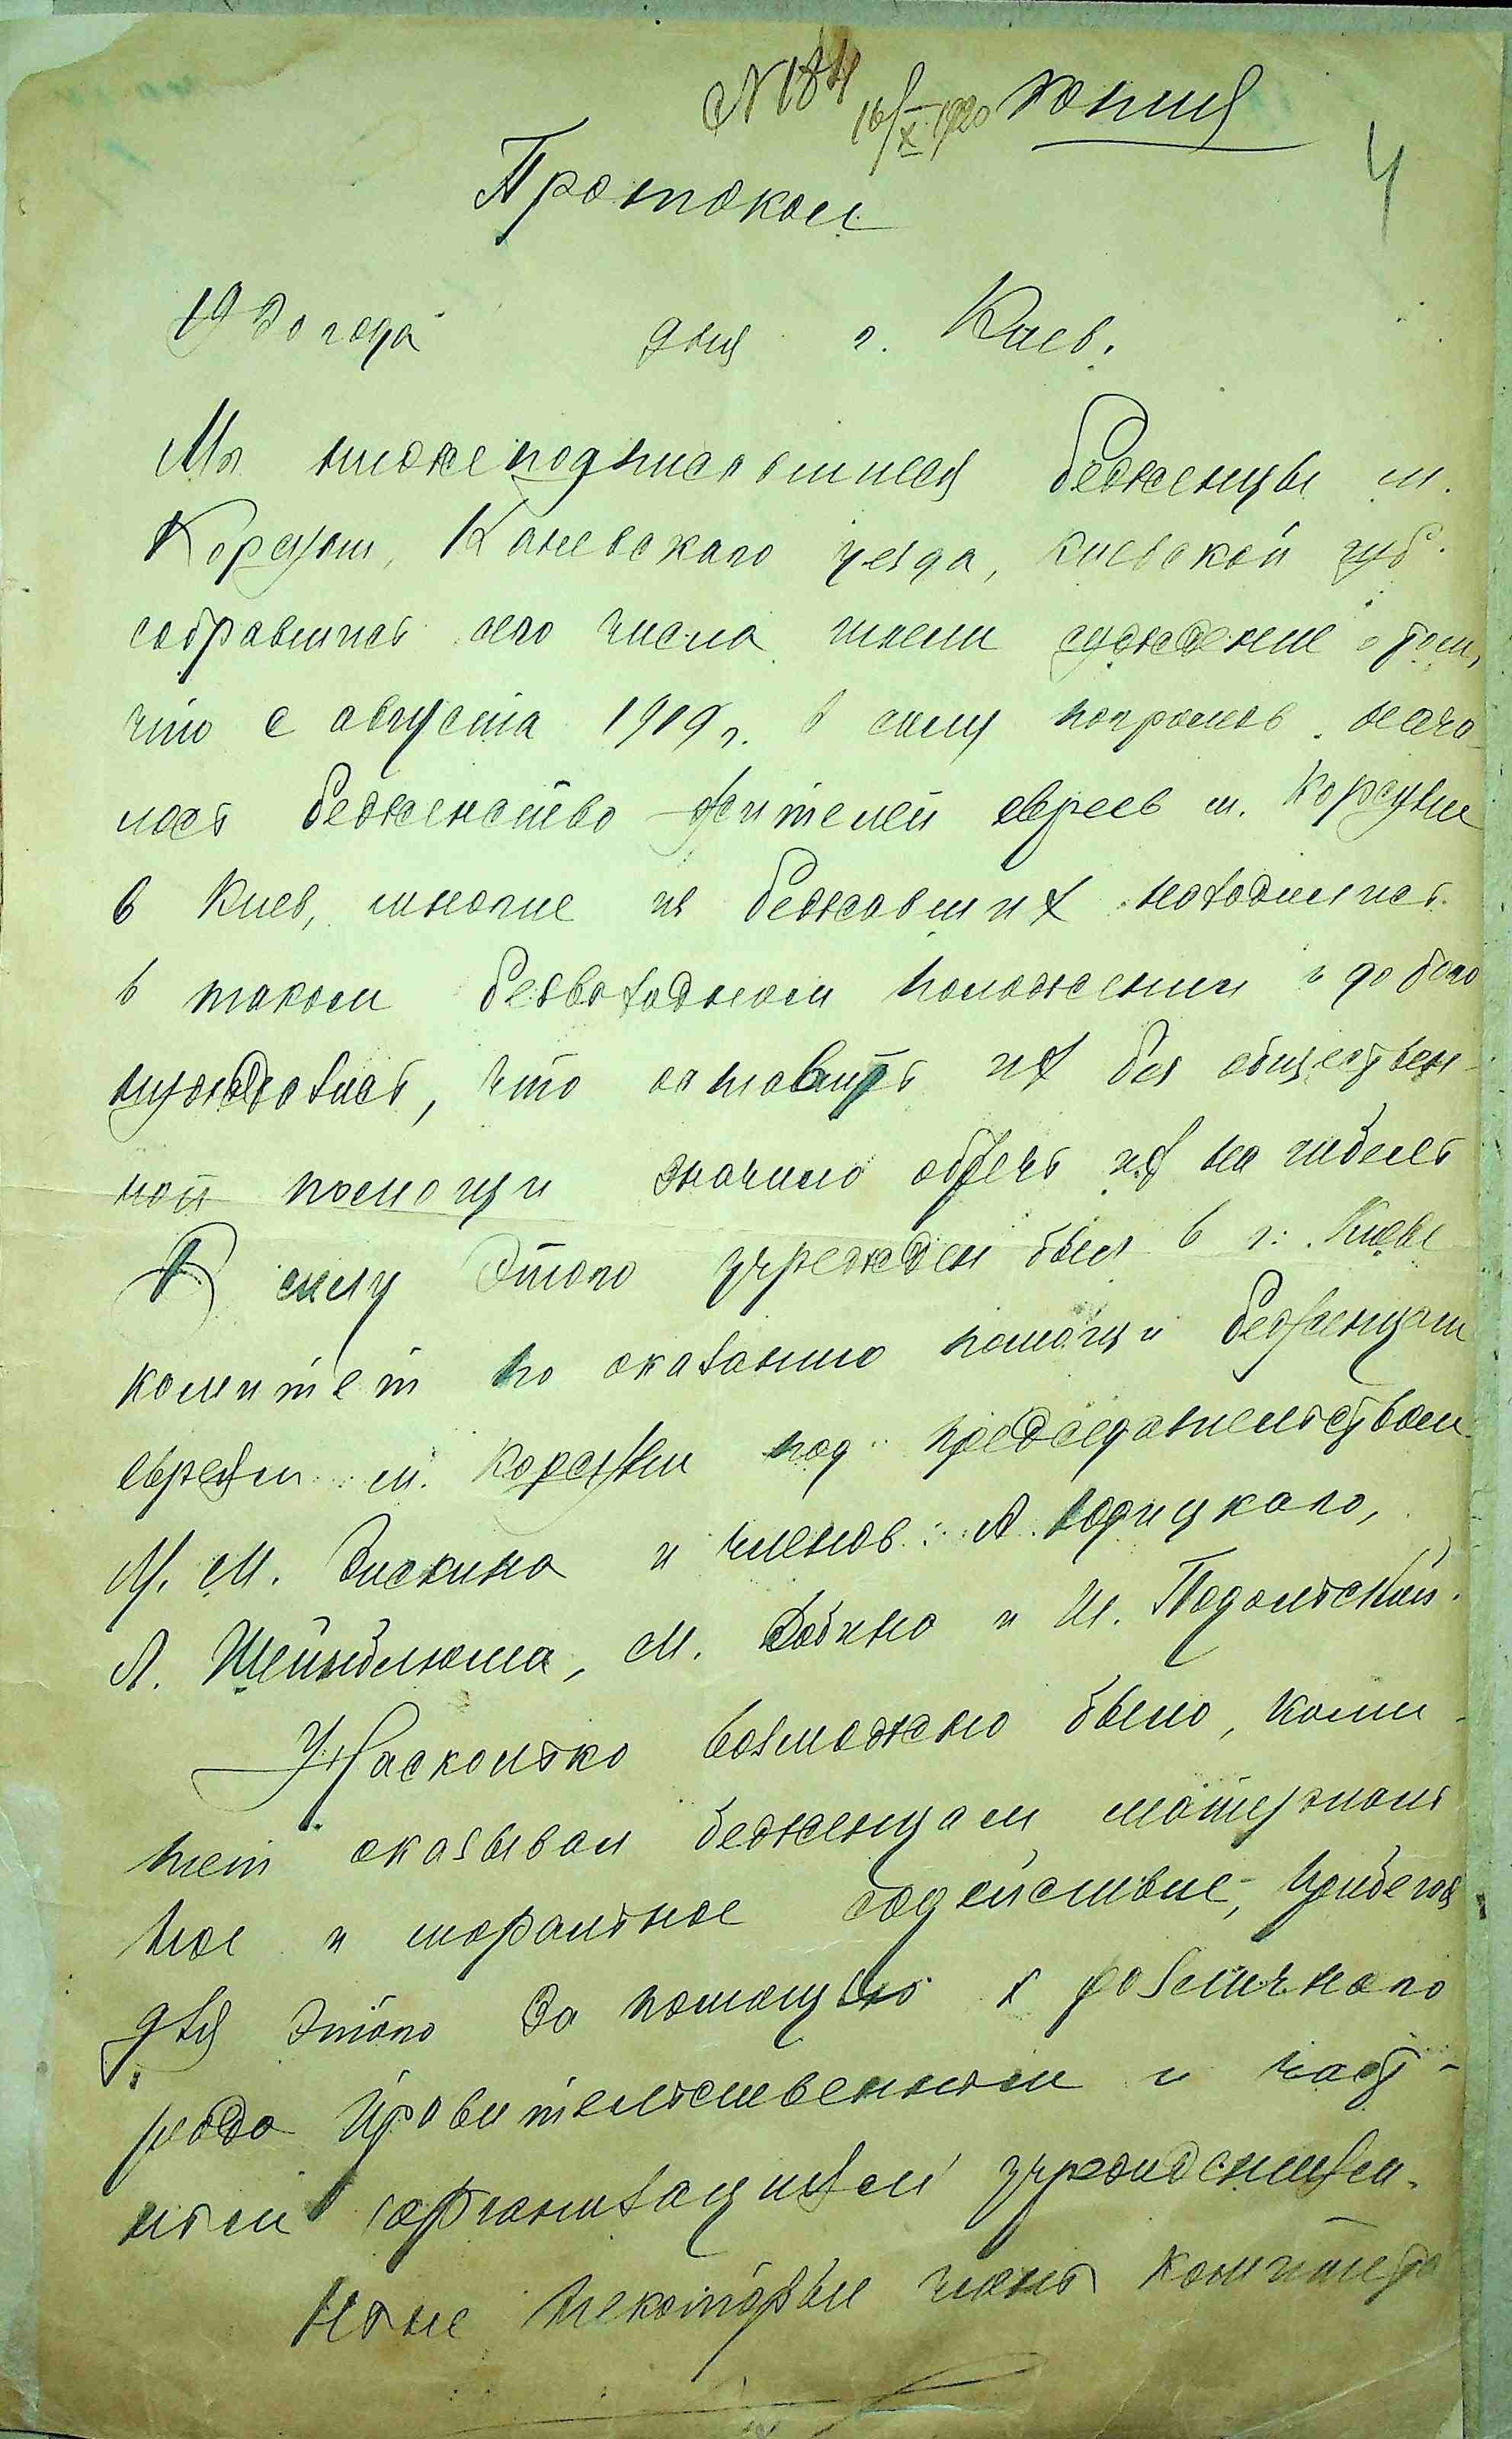 N 184 16/X 1920 Копия
4
Протокол
1920 года дня г. Киев.
Мы нижеподписавшиеся беженцы м.
Корсуни, Каневскаго уезда, Киевской губ.
собравшись сего числа имели суждение о том,
что с августа 1919 г. в силу погромов нача-
лось беженство жителей евреев м. Корсуни
в Киев, многие из бежавших находились
в таком безвыходном положении и до того
нуждались, что оставить их без обществен-
ной помощи значило обречь их на гибель
В силу этого учрежден был в г. Киеве
комитет по оказанию помощи беженцам
евреям м. Корсуни под председательством
М. М. Дискина и членов: А. Кодицкаго,
Л. Шейнблюма, М. Бабина и И. Подольский.
Насколько возможно было, коми-
тет оказывал беженцам материаль
ное и моральное содействие, прибегая
для этого за помощью к различнаго
рода правительственным и част-
ным организациям учреждениям.
Ныне некоторые члены комитета